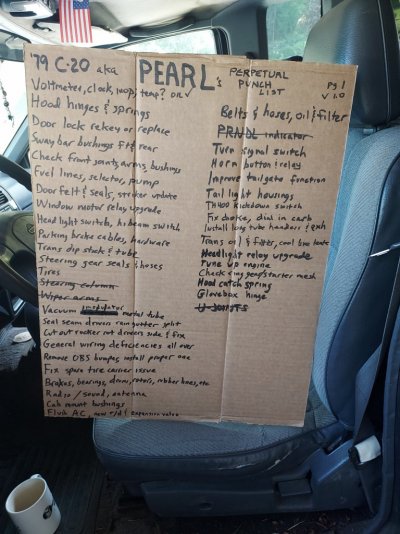 '79 C-20 aka PEARL's PERPETUAL PUNCH LIST
Pg 1
v 1.0
Voltmeter, clock, temp? oil ✓
Hood hinges & springs
Door lock rekey or replace
Sway bar bushings ft & rear
Check front joints, arms, bushings
Fuel lines, selector, pump
Door felt & seals, striker update
Window motor relay upgrade
Headlight switch, hi beam switch
Parking brake cables, hardware
Trans dip stick & tube
Steering gear seals & hoses
Tires
Steering column
Wiper arms
Vacuum modulator metal tube
Seal seam drivers rain gutter split
Cut out rocker rot drivers side & fix
General wiring deficiencies all over
Remove OBS bumper, install proper one
Fix spare tire carrier issue
Brakes, bearings, drums, rotors, rubber hoses, etc
Radio / sound, antenna
Cab mount bushings
Flush AC, new r/d & expansion valve
Belts & hoses, oil & filter
PRNDL indicator
Turn signal switch
Horn button & relay
Improve tailgate function
Tail light housings
TH400 kickdown switch
Fix choke, dial in carb
Install long tube headers & exh
Trans oil & filter, cool line leak
Headlight relay upgrade
Tune up engine
Check ring gear/starter mesh
Hood catch spring
Glovebox hinge
U-JOINTS